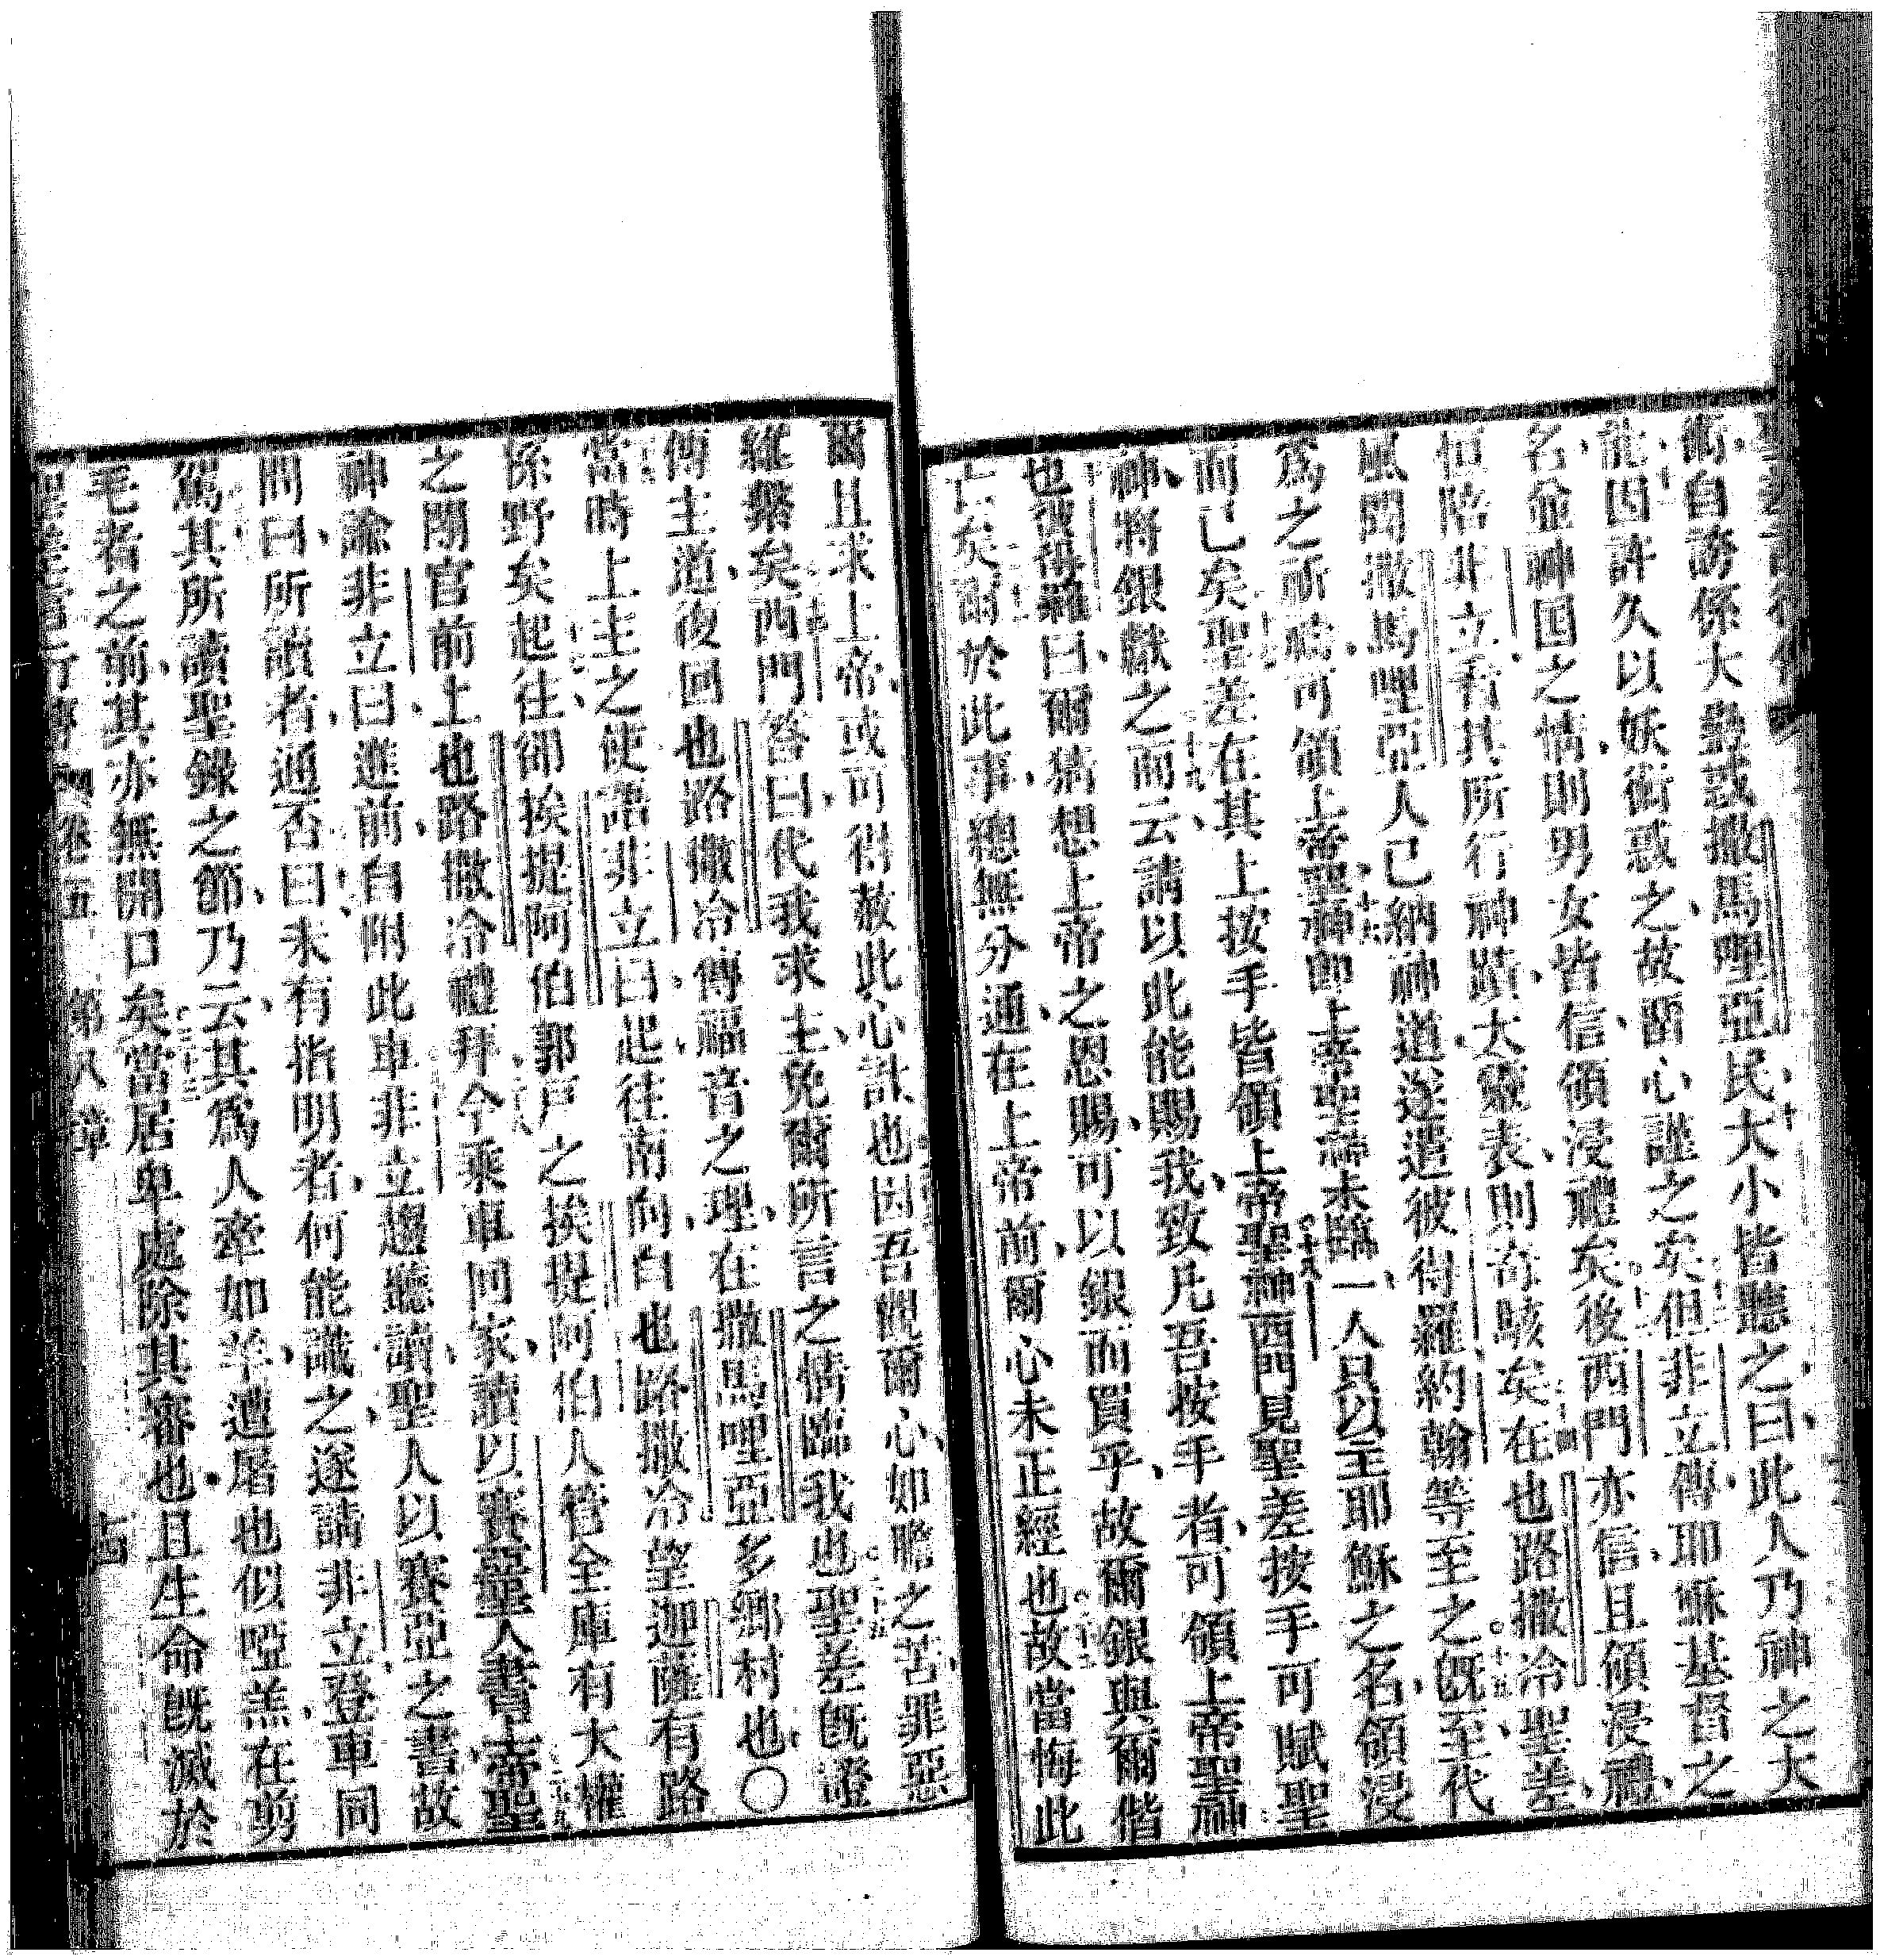 術自誇係大蠱惑撒馬哩亞民大小皆聽之曰此人乃神之大
能因許久以妖術惑之故留心謹之矣但非立傳耶穌基督之
名並神國之情則男女皆信領浸禮矣後西門亦信且領浸禮
恒陪非立看其所行神蹟大靈表則奇駭矣在也路撒冷聖差
風聞撒馬哩亞人已納神道遂遣彼得羅約翰等至之既至代
爲之祈禱可領上帝聖神卽上帝聖神未臨一人只以主耶穌之名領浸
而已矣聖差在其上按手皆領上帝聖神西門見聖差按手可賦聖
神將銀獻之而云請以此能賜我致凡吾按手者可領上帝聖神
也彼得羅曰爾猜想上帝之恩賜可以銀而買乎故爾銀與爾偕
亡矣爾於此事總無分通在上帝前爾心未正經也故當悔此
爾且求上帝或可得赦此心計也因吾觀爾心如膽之苦罪惡
維繫矣西門答曰代我求主免爾所言之情臨我也聖差既證
傳主道後回也路撒冷傳福音之理在撒馬哩亞多鄉村也〇
當時上主之使語非立曰起往南向自也路撒冷望迦薩有路
係野矣起往卻挨提阿伯郭戶之挨提阿伯人管全庫有大權
之閹官前上也路撒冷禮拜今乘車回家讀以賽亞聖人書上帝聖
神諭非立曰進前自附此車非立趨聽讀聖人以賽亞之書故
問曰所讀者通否曰未有指明者何能識之遂請非立登車同
駕其所讀聖錄之節乃云其爲人牽如羊遭屠也似啞羔在剪
毛者之前其亦無開口矣當居卑處除其審也且生命既滅於
聖差言行傳 卷五 第八章